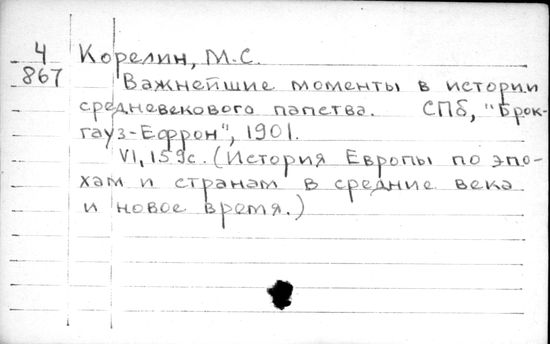 4 Корелин, М.С.
867 Важнейшие моменты в истории
средневекового папства. СПб, "Брок-
гауз-Ефрон", 1901.
VI, 159с. (История Европы по эпо-
хам и странам в средние века
и новое время.)